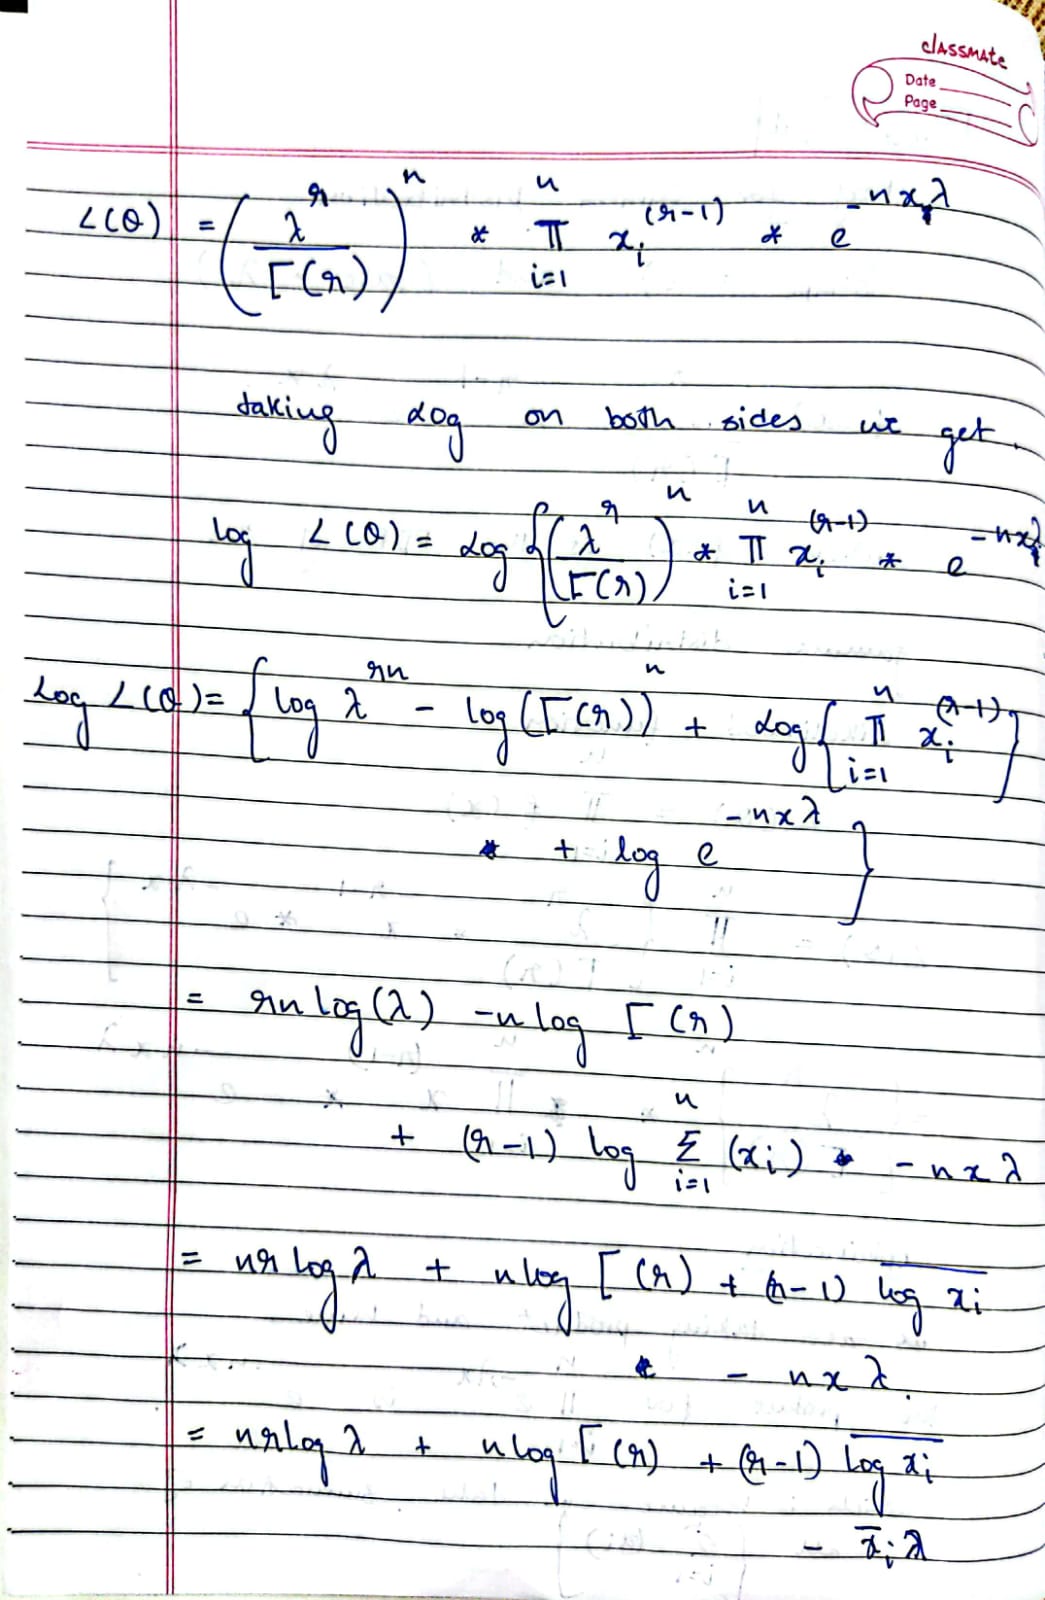 classmate
Date
Page
L(θ) = (λ^r / Γ(r))^n * n∏i=1 x_i^(r-1) * e^-nx_iλ
taking log on both sides we get.
log L(θ) = log {(λ^r / Γ(r))^n * n∏i=1 x_i^(r-1) * e^-nx_iλ
Log L(θ) = { log λ^rn - log(Γ(r))^n + log{ n∏i=1 x_i^(r-1) }
+ log e^-nxλ }
= rn log(λ) - n log Γ(r)
+ (r-1) log n∑i=1 (xi) - nxλ
= nr log λ + n log Γ(r) + (r-1) \overline{log xi}
- nxλ.
= nr log λ + n log Γ(r) + (r-1) \overline{log xi}
- x̄iλ